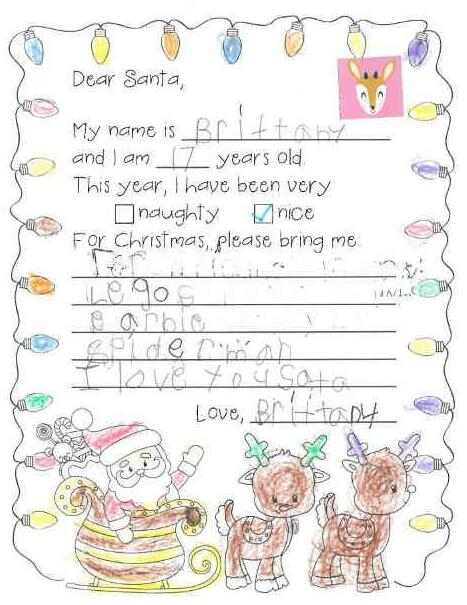 Dear Santa,
My name is Brittany
and I am 17 years old.
This year, I have been very
naughty nice
For Christmas, please bring me
Legos
Barbie
Spiderman
I love you Sata
Love, Brittany